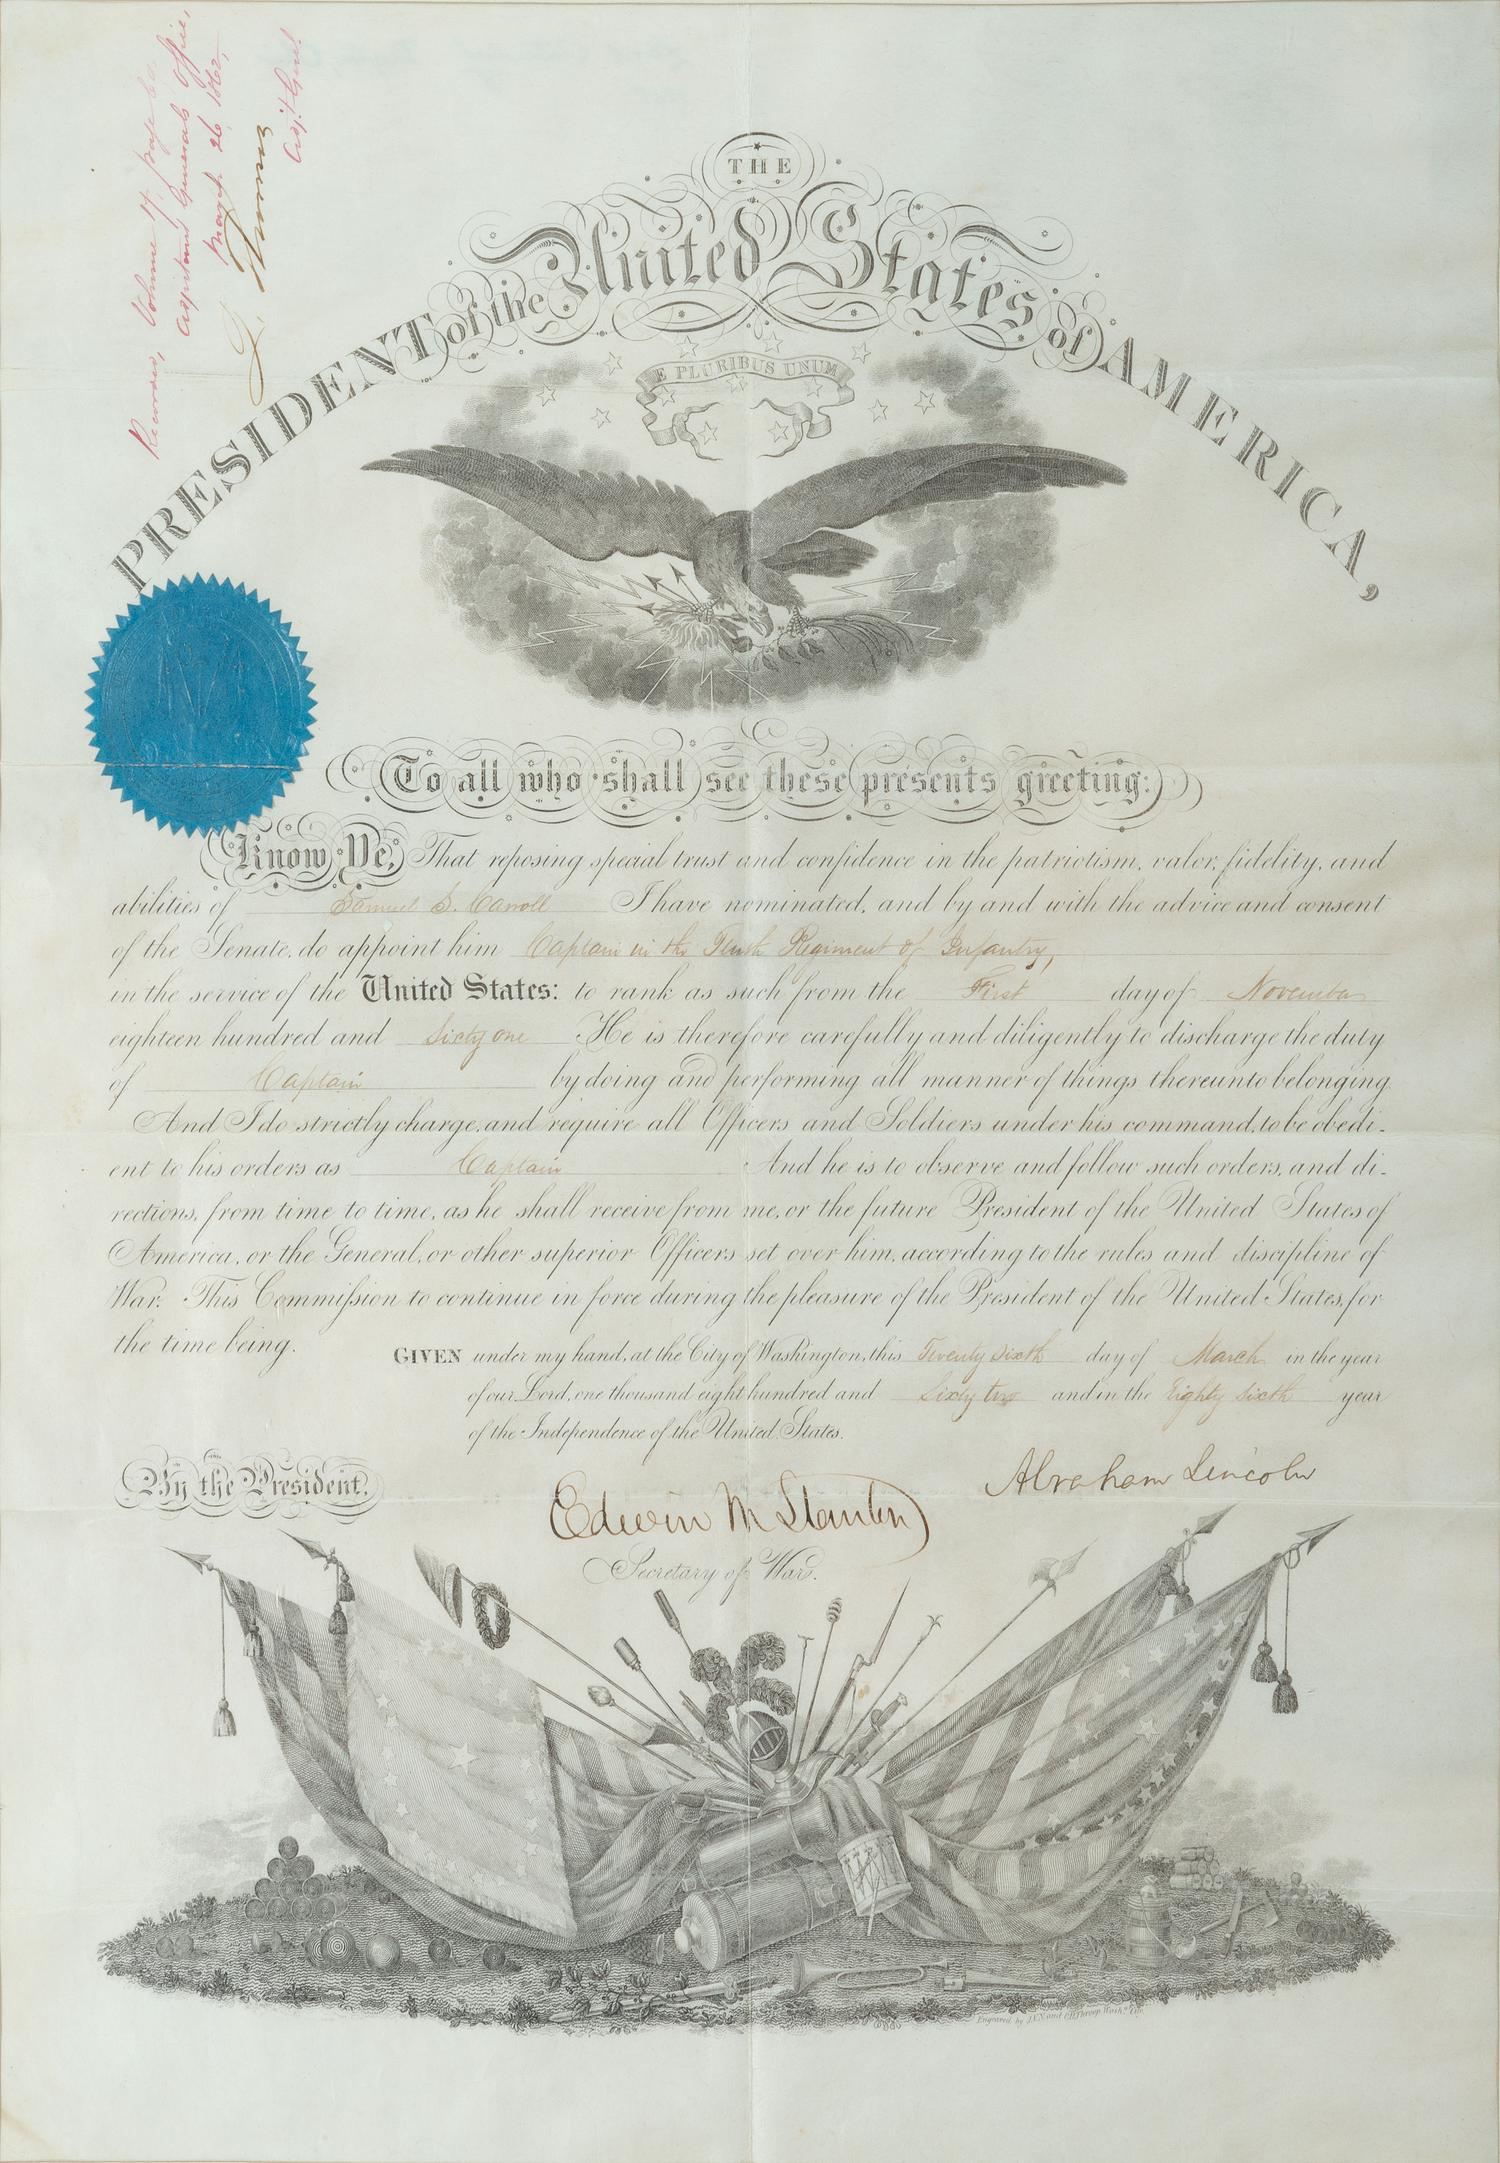 Recorded, Volume 4,
Adjutant Generals Office,
March 26 1862,
L. Thomas
Adj.t Genl.
THE
PRESIDENT of the United States of AMERICA,
E PLURIBUS UNUM
To all who shall see these presents greeting:
Know Ye, That reposing special trust and confidence in the patriotism, valor, fidelity, and
abilities of Samuel S. Carroll I have nominated, and by and with the advice and consent
of the Senate, do appoint him Captain in the Tenth Regiment of Infantry,
in the service of the United States: to rank as such from the First day of November
eighteen hundred and Sixty one He is therefore carefully and diligently to discharge the duty
of Captain by doing and performing all manner of things thereunto belonging.
And I do strictly charge, and require all Officers and Soldiers under his command, to be obedi-
ent to his orders as Captain And he is to observe and follow such orders, and di-
rections, from time to time, as he shall receive from me, or the future President of the United States of
America, or the General, or other superior Officers set over him, according to the rules and discipline of
War. This Commission to continue in force during the pleasure of the President of the United States, for
the time being.
GIVEN under my hand, at the City of Washington, this Twenty sixth day of March in the year
of our Lord, one thousand eight hundred and Sixty two and in the Eighty Sixth year
of the Independence of the United States.
By the President.
Abraham Lincoln
Edwin M Stanton
Secretary of War.
Engraved by J.V.N. and O.H. Throop Wash.n